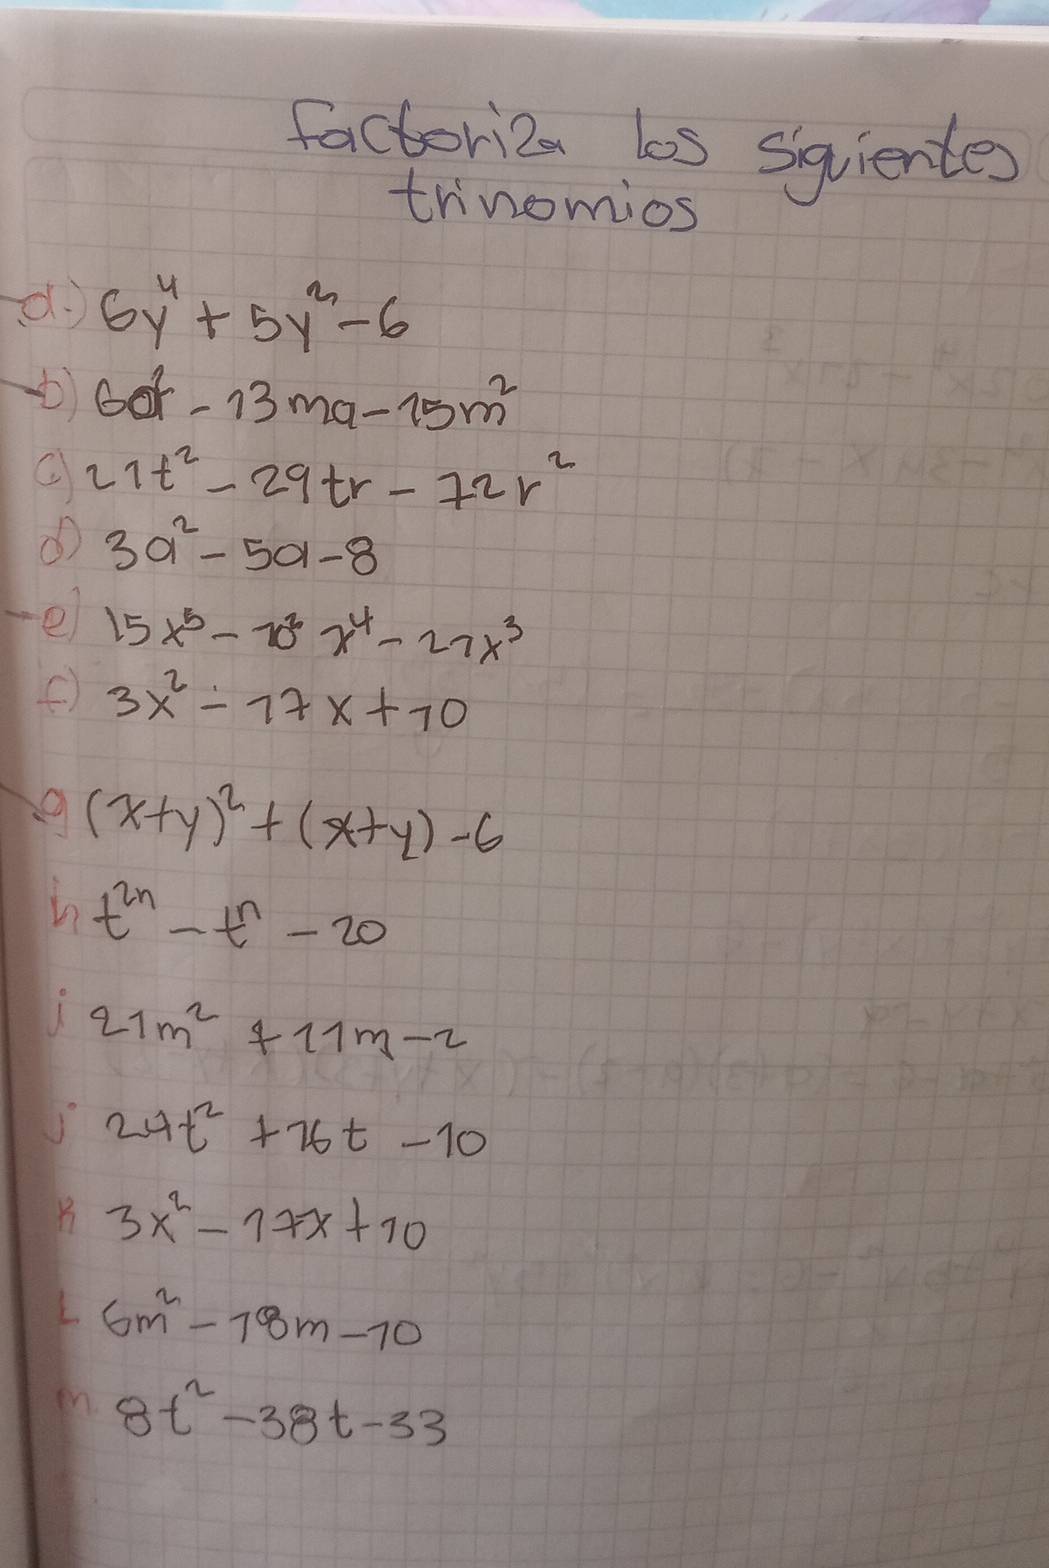 Factoriza los siguientes
trinomios
a.) 6y⁴ + 5y² - 6
b) 6a² - 13ma - 15m²
c) 21t² - 29tr - 72r²
d) 3a² - 5a - 8
e) 15x⁵ - x⁴ - 27x³
f) 3x² - 17x + 10
g (x+y)² + (x+y) - 6
h t²ⁿ - tⁿ - 20
i 21m² + 11m - 2
j 24t² + 16t - 10
K 3x² - 17x + 10
L 6m² - 18m - 10
m 8t² - 38t - 33